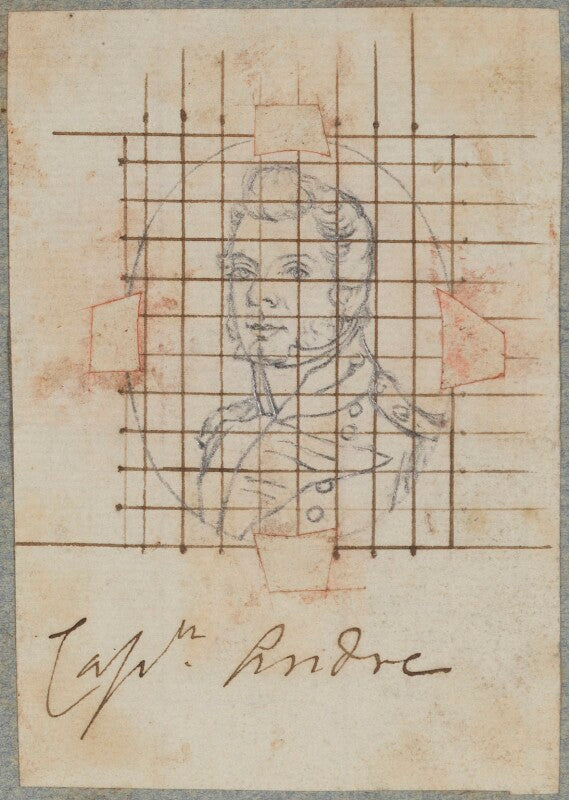 Capⁿ. Andre